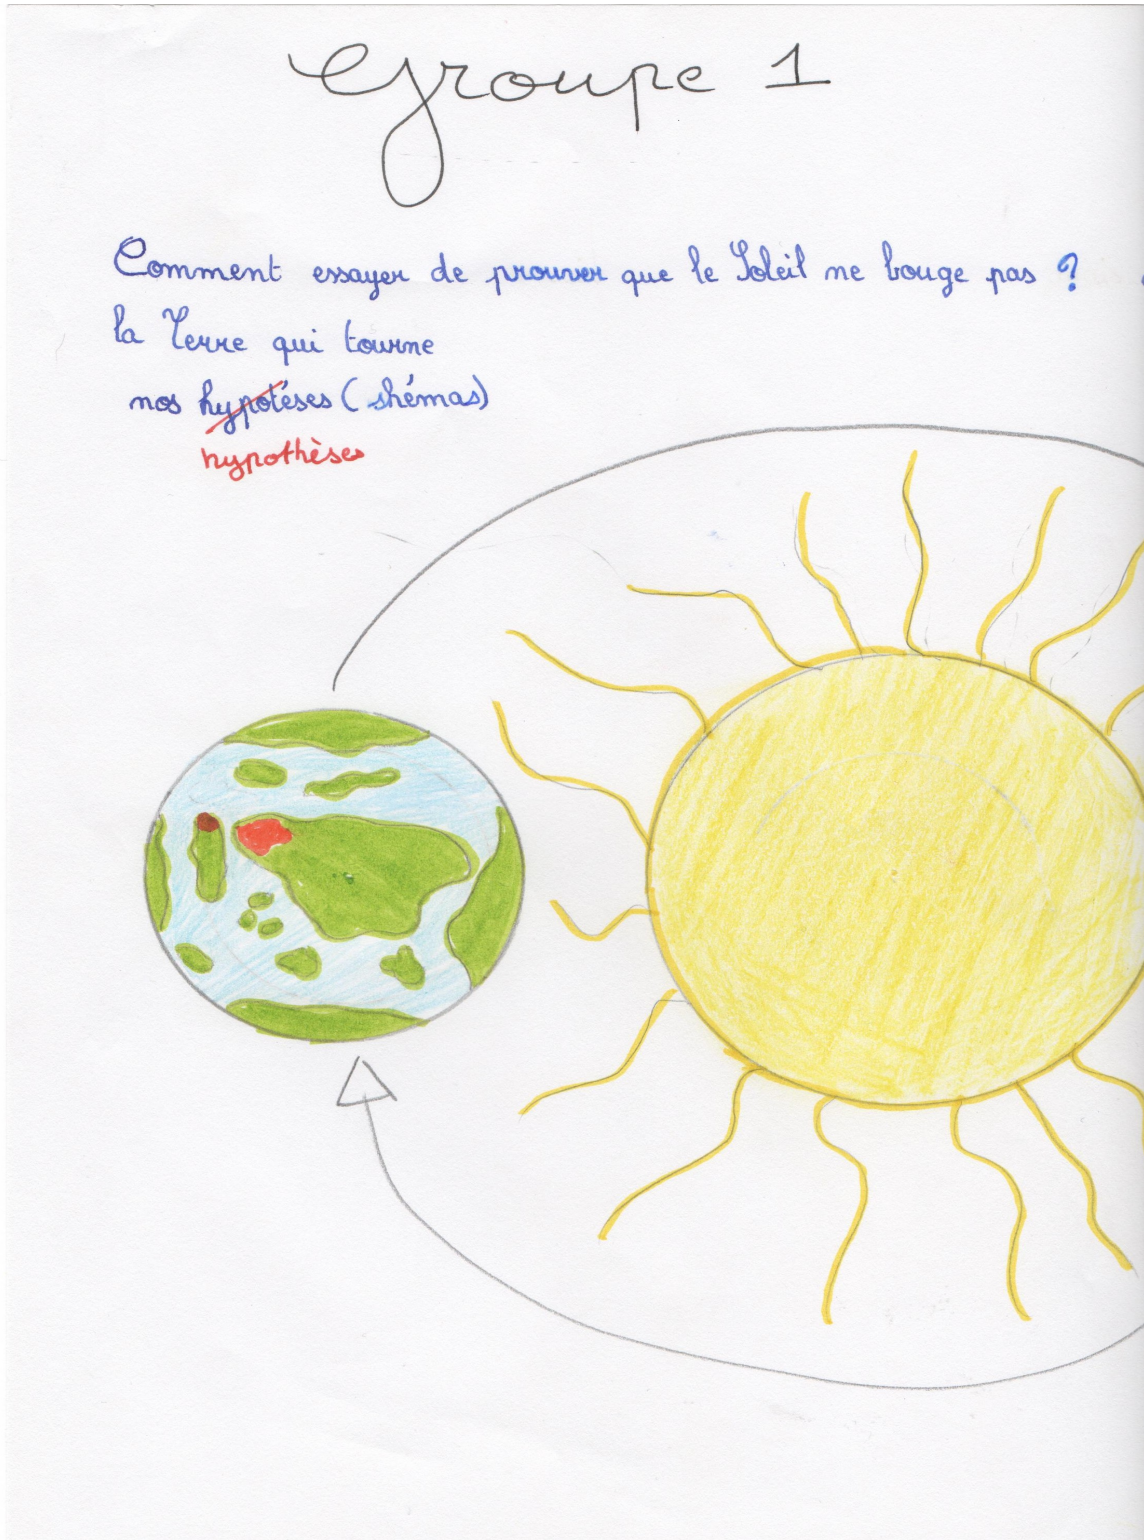 Groupe 1
Comment essayer de prouver que le Soleil ne bouge pas ?
la Terre qui tourne
nos hypotéses (shémas)
hypothèses